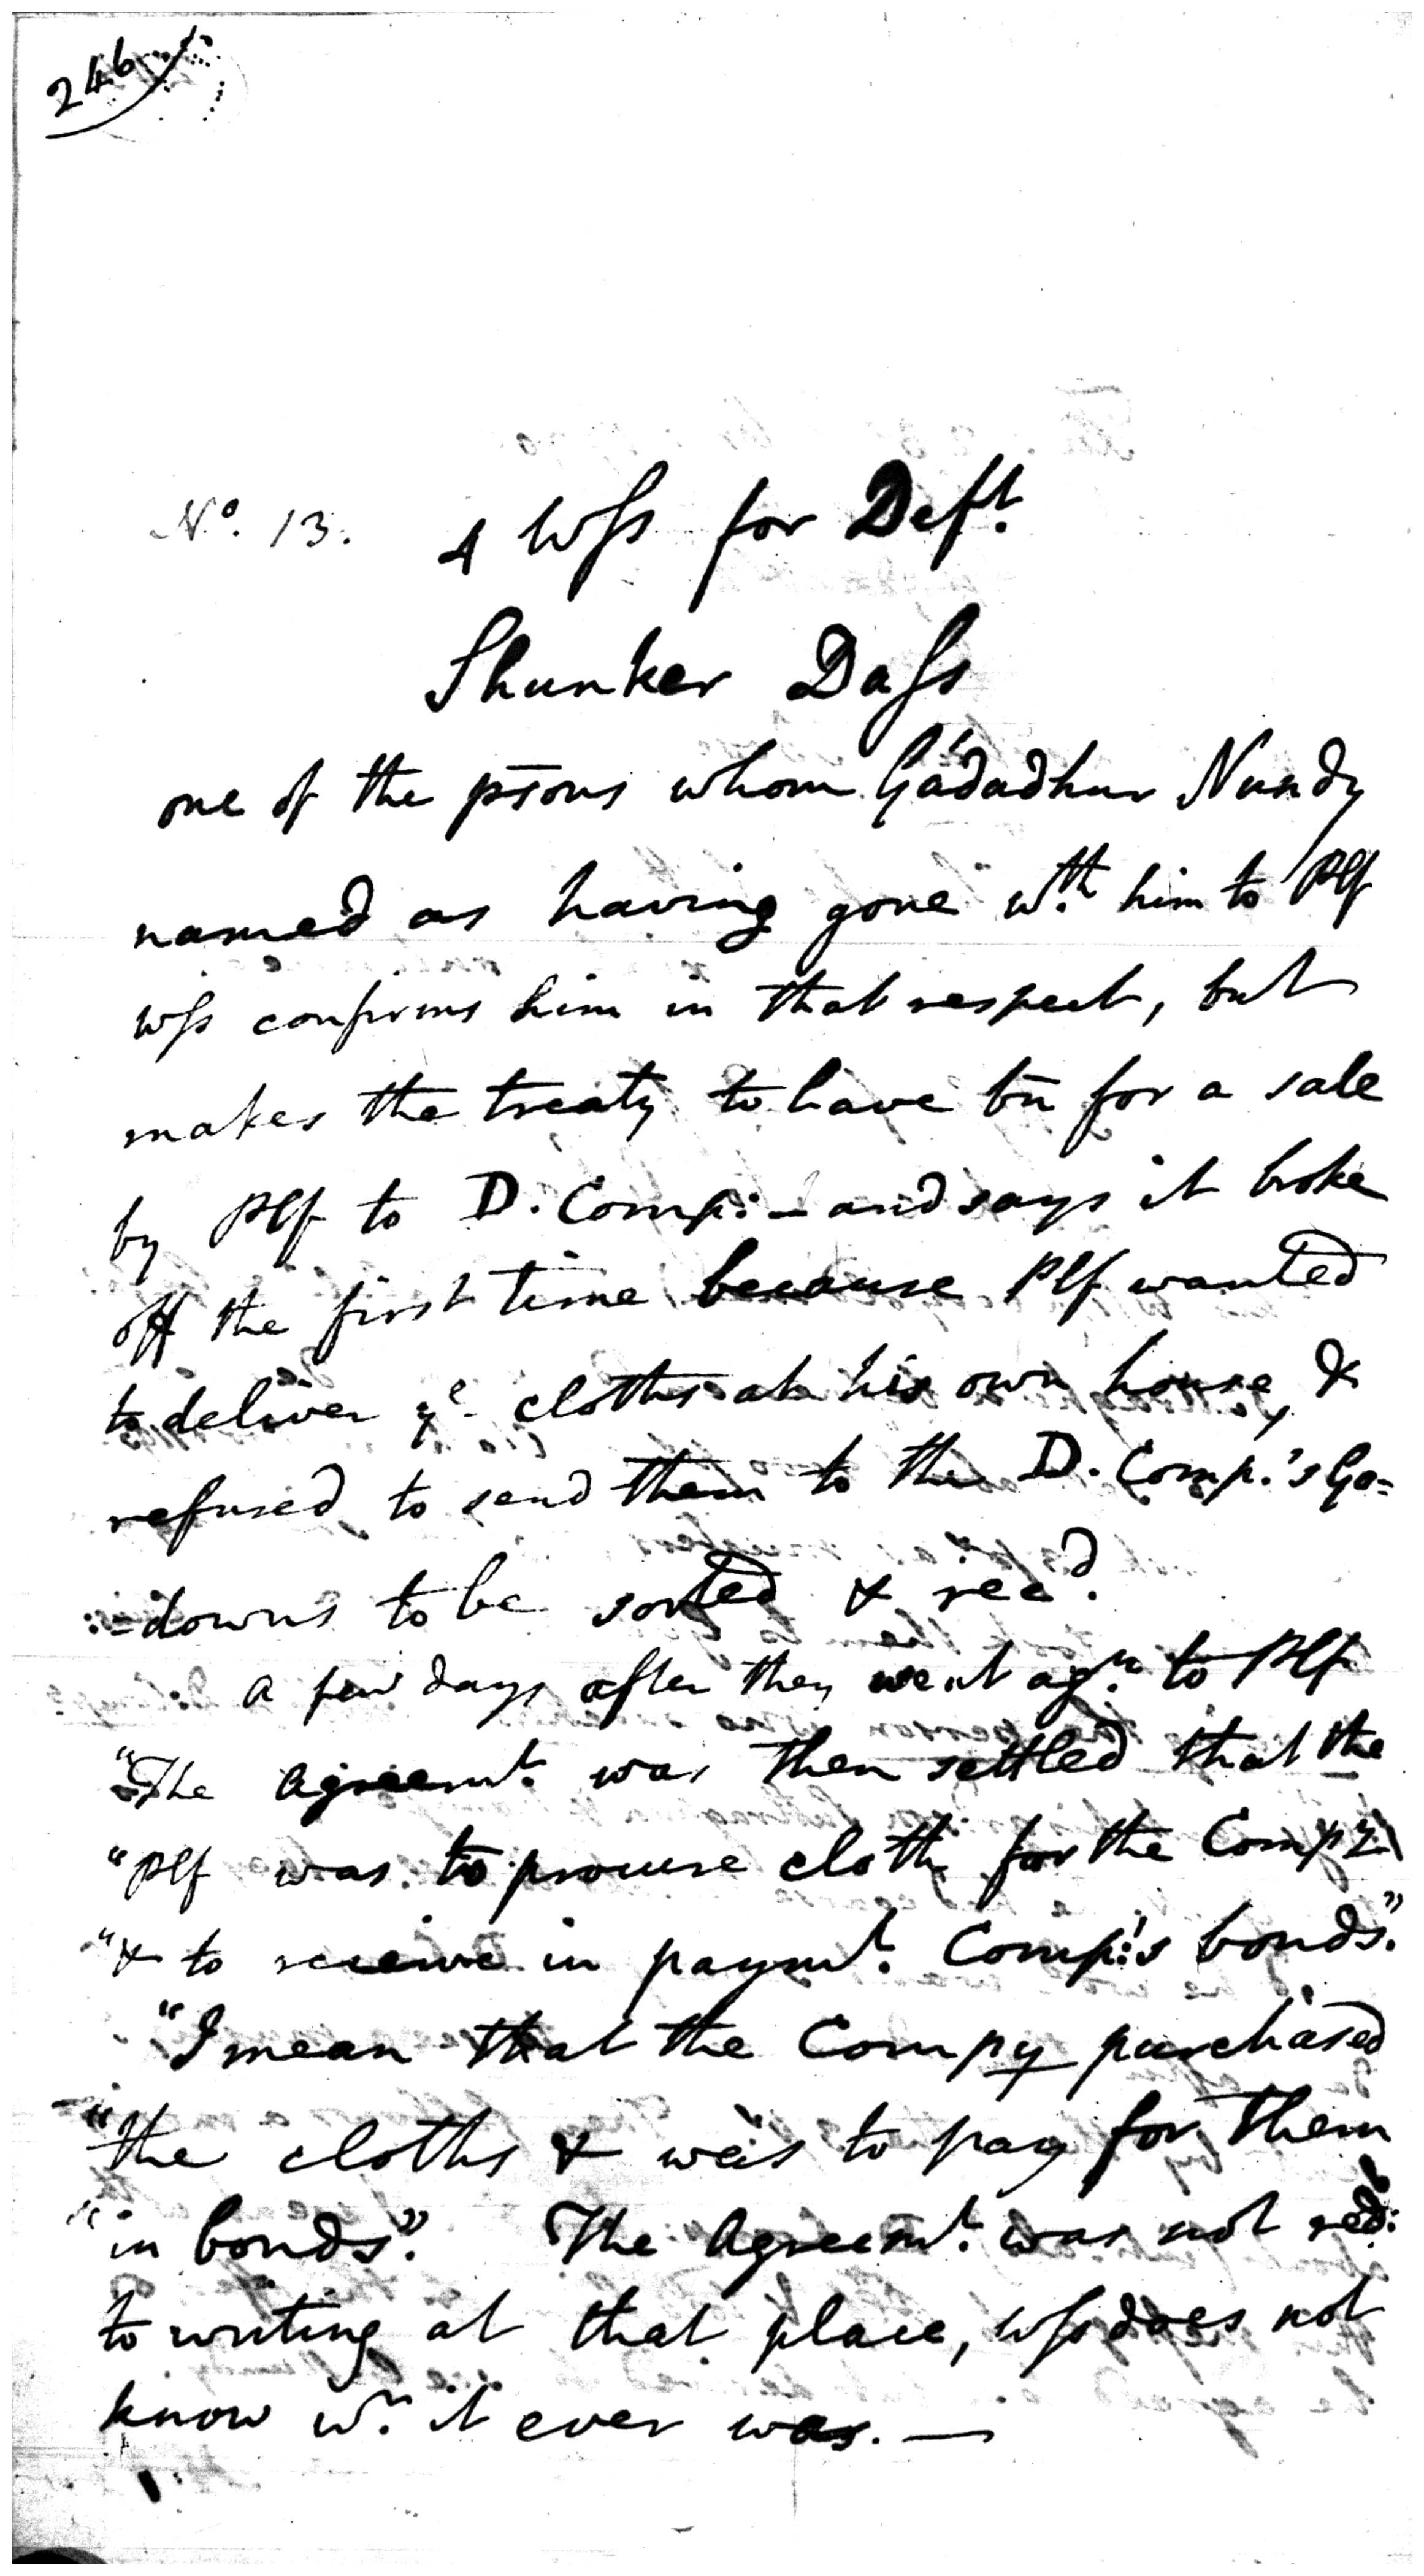 246
No. 13. 4 Wss for Deft.
Shunker Dass
one of the psons whom Gádadhur Nundy
named as having gone wth. him to Plf
wss confirms him in that respect, but
makes the treaty to have bn for a sale
by Plf to D. Comp: – and says it broke
off the first time because Plf wanted
to deliver ye cloths at his own house, &
refused to send them to the D. Comp.'s Go=
:=downs to be sorted & recd.
a few days after they went agn. to Plf
"The agreemt. was then settled that the
"Plf was to procure cloth for the Compy
"& to receive in paymt. Comp:'s bonds."
"I mean that the Compy purchased
"the cloths & was to pay for them
"in bonds". The Agreemt. was not red:
to writing at that place, wss does not
know wr. it ever was. —